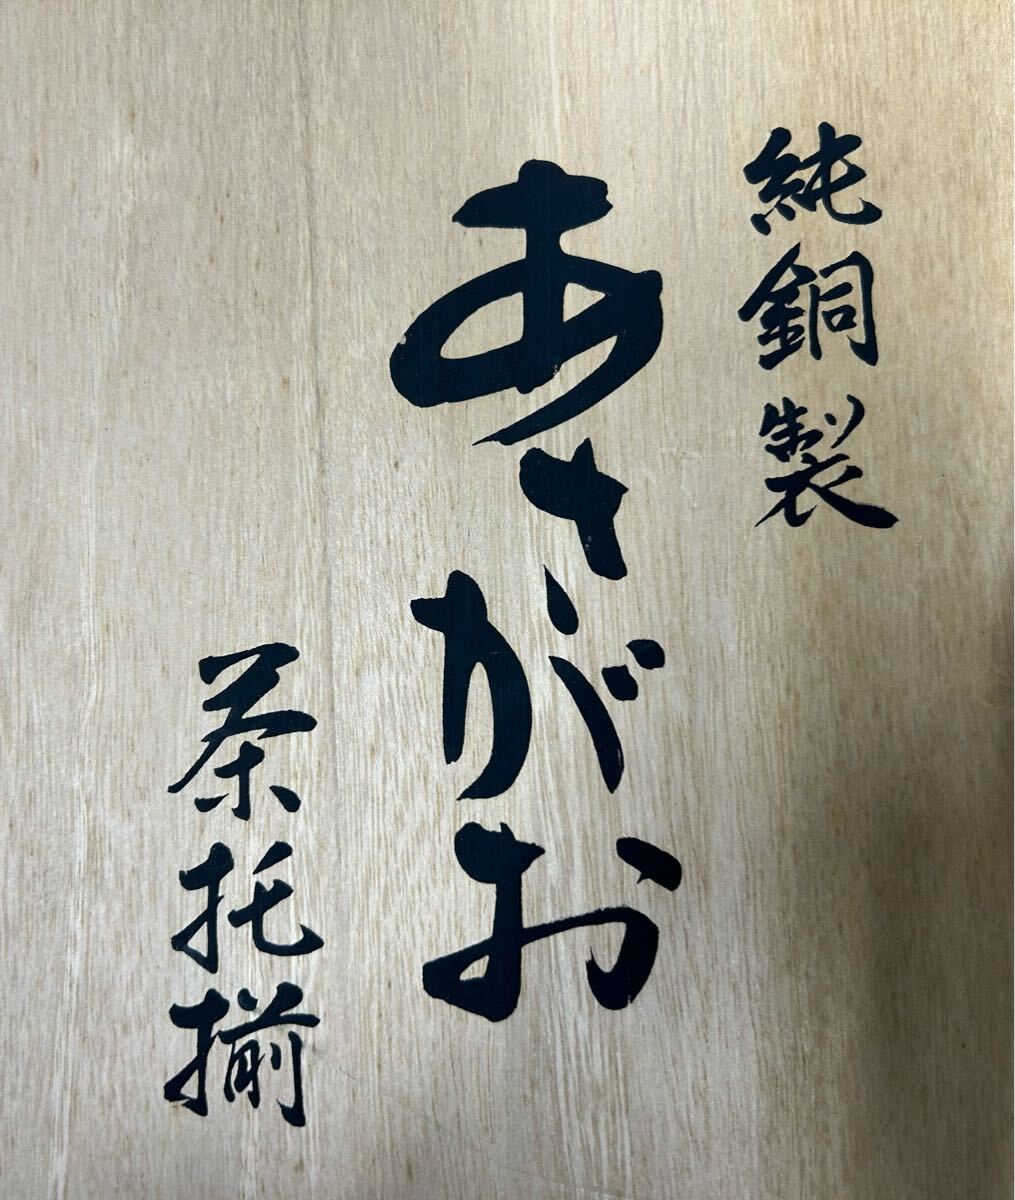 純銅製
あさがお
茶托揃